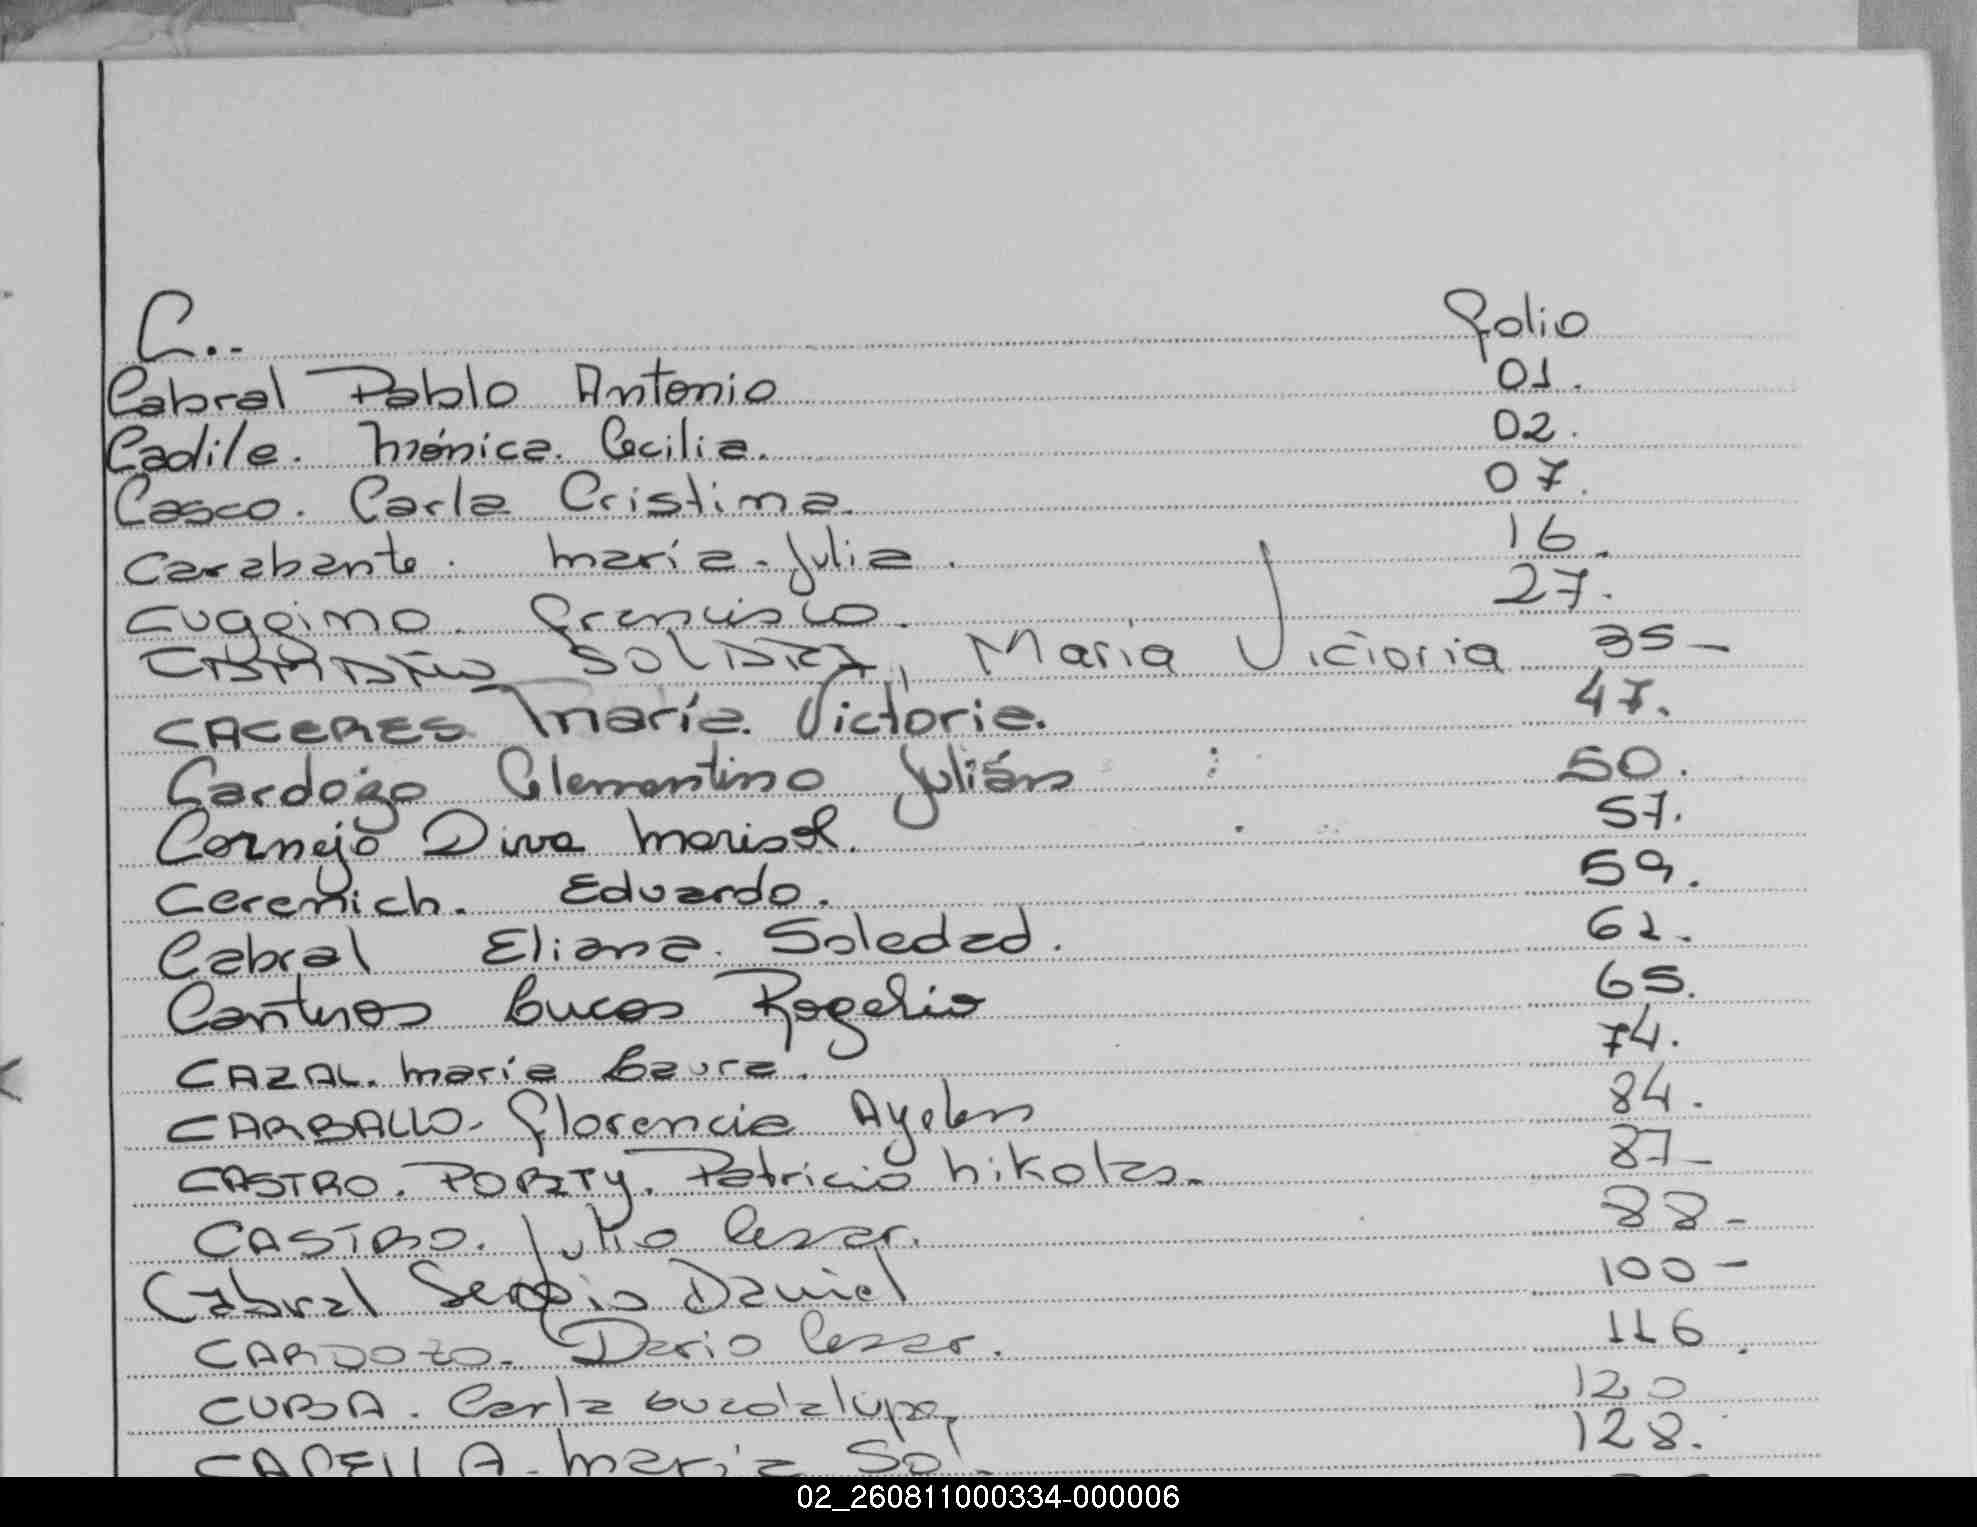 C..
folio
Cabral Pablo Antonio 01.
Cadile. Mónica. Cecilia. 02.
Casco. Carla Cristina. 07.
Carabante. María. Julia. 16.
Cuggino. Francisco. 27.
SOLDRA, Maria Victoria 35-
CACERES María. Victoria. 47.
Cardozo Clementino Julián 50.
Cornejo Diva Marisol. 57.
Ceremich. Eduardo. 59.
Cabral Eliana. Soledad. 62.
Lucas Rogelio 65.
CAZAL. María Laura. 74.
CARBALLO. Florencia Ayelen 84.
CASTRO. Patricio Nikolas. 87-
CASTRO. Julio Cesar. 88-
Cabral Sergio Daniel 100-
CARDOZO. Dario Cesar. 116.
CUBA. Carla Guadalupe, 120
CAPELLA. María Sol. 128.
02_260811000334-000006